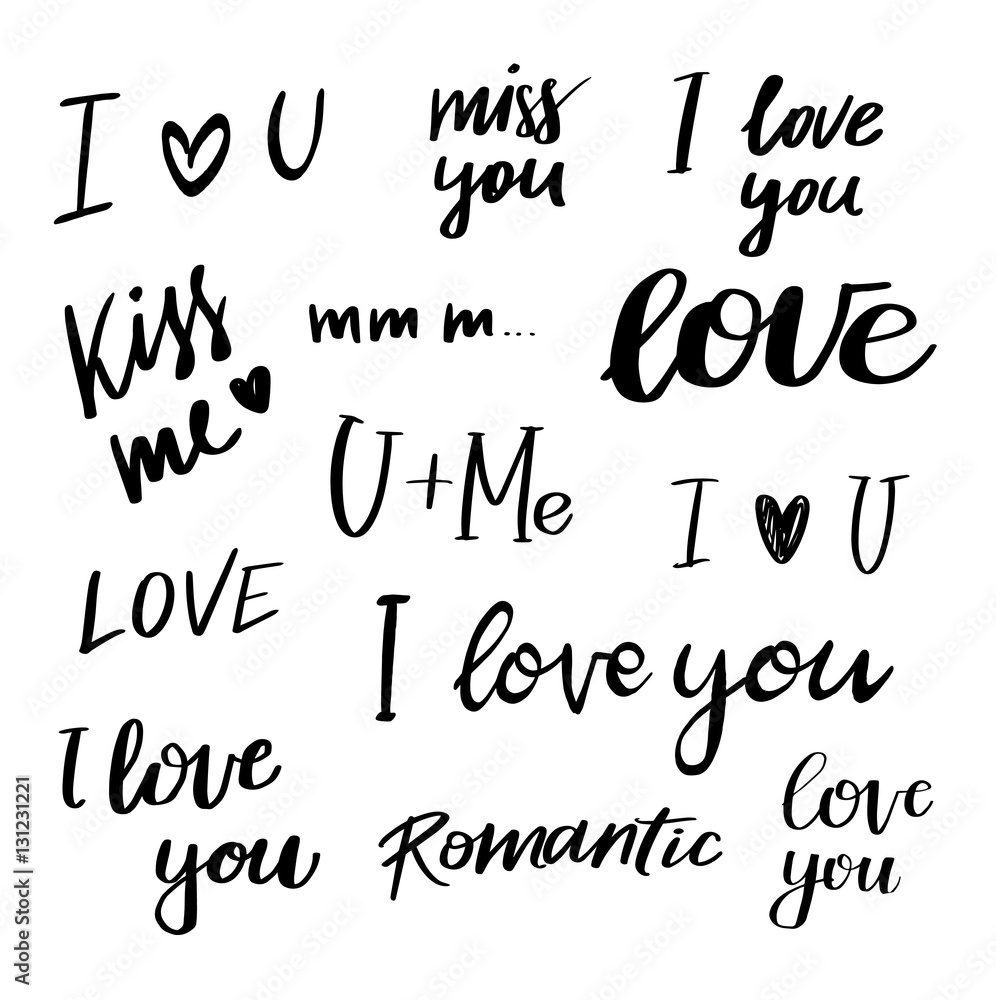 I ♥ U
miss
you
I love
you
Kiss
me ♥
mmm...
love
U+Me
I ♥ U
LOVE
I love you
I love
you
Romantic
love
you
Adobe Stock | #131231221